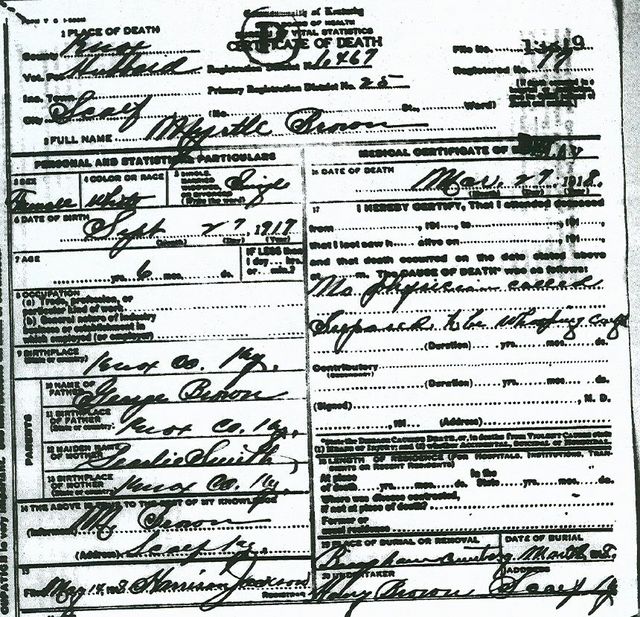 Commonwealth of Kentucky
BOARD OF HEALTH
VITAL STATISTICS
CERTIFICATE OF DEATH
B
1 PLACE OF DEATH
County Knox
File No.
Vot. Hubbard
Registration District No. 1467
Registered No. 17
Inc. Town
Primary Registration District No. 25
City Scalf (No. St., Ward)
2 FULL NAME Myrtle Brown
PERSONAL AND STATISTICAL PARTICULARS
3 SEX
Female
4 COLOR OR RACE
White
5 SINGLE, MARRIED, WIDOWED, OR DIVORCED (Write the word)
Single
6 DATE OF BIRTH
Sept 27, 1917
(Month) (Day) (Year)
7 AGE
yrs. 6 mos. ds.
IF LESS than
1 day hrs.
or min.?
8 OCCUPATION
(a) Trade, profession, or
particular kind of work
(b) General nature of industry
business or establishment in
which employed (or employer)
9 BIRTHPLACE
(State or country)
Knox Co. Ky.
PARENTS
10 NAME OF
FATHER
George Brown
11 BIRTHPLACE
OF FATHER
(State or country)
Knox Co. Ky.
12 MAIDEN NAME
OF MOTHER
Smith
13 BIRTHPLACE
OF MOTHER
(State or country)
Knox Co. Ky.
14 THE ABOVE IS TRUE TO THE BEST OF MY KNOWLEDGE
(Informant)
(Address) Scalf Ky.
15
Filed May 14, 1918 Harrison Jackson
REGISTRAR
MEDICAL CERTIFICATE OF
16 DATE OF DEATH
Mar. 27, 1918
17
I HEREBY CERTIFY, That I attended deceased
from , 191 , to , 191 ,
that I last saw h alive on , 191 ,
and that death occurred on the date stated above
at m. The CAUSE OF DEATH* was as follows:
No physician called
Supposed to be Whooping cough
(Duration) yrs. mos. ds.
Contributory
(SECONDARY)
(Duration) yrs. mos. ds.
(Signed) , M. D.
, 191 (Address)
*State the DISEASE CAUSING DEATH, or, in deaths from VIOLENT CAUSES state
(1) MEANS OF INJURY; and (2) whether ACCIDENTAL, SUICIDAL, or HOMICIDAL
18 LENGTH OF RESIDENCE (FOR HOSPITALS, INSTITUTIONS, TRANSIENTS OR RECENT RESIDENTS)
At place
of death yrs. mos. ds.
In the
State yrs. mos. ds.
Where was disease contracted,
if not at place of death?
Former or
usual residence
19 PLACE OF BURIAL OR REMOVAL
DATE OF BURIAL
20 UNDERTAKER
ADDRESS
Brown Scalf Ky